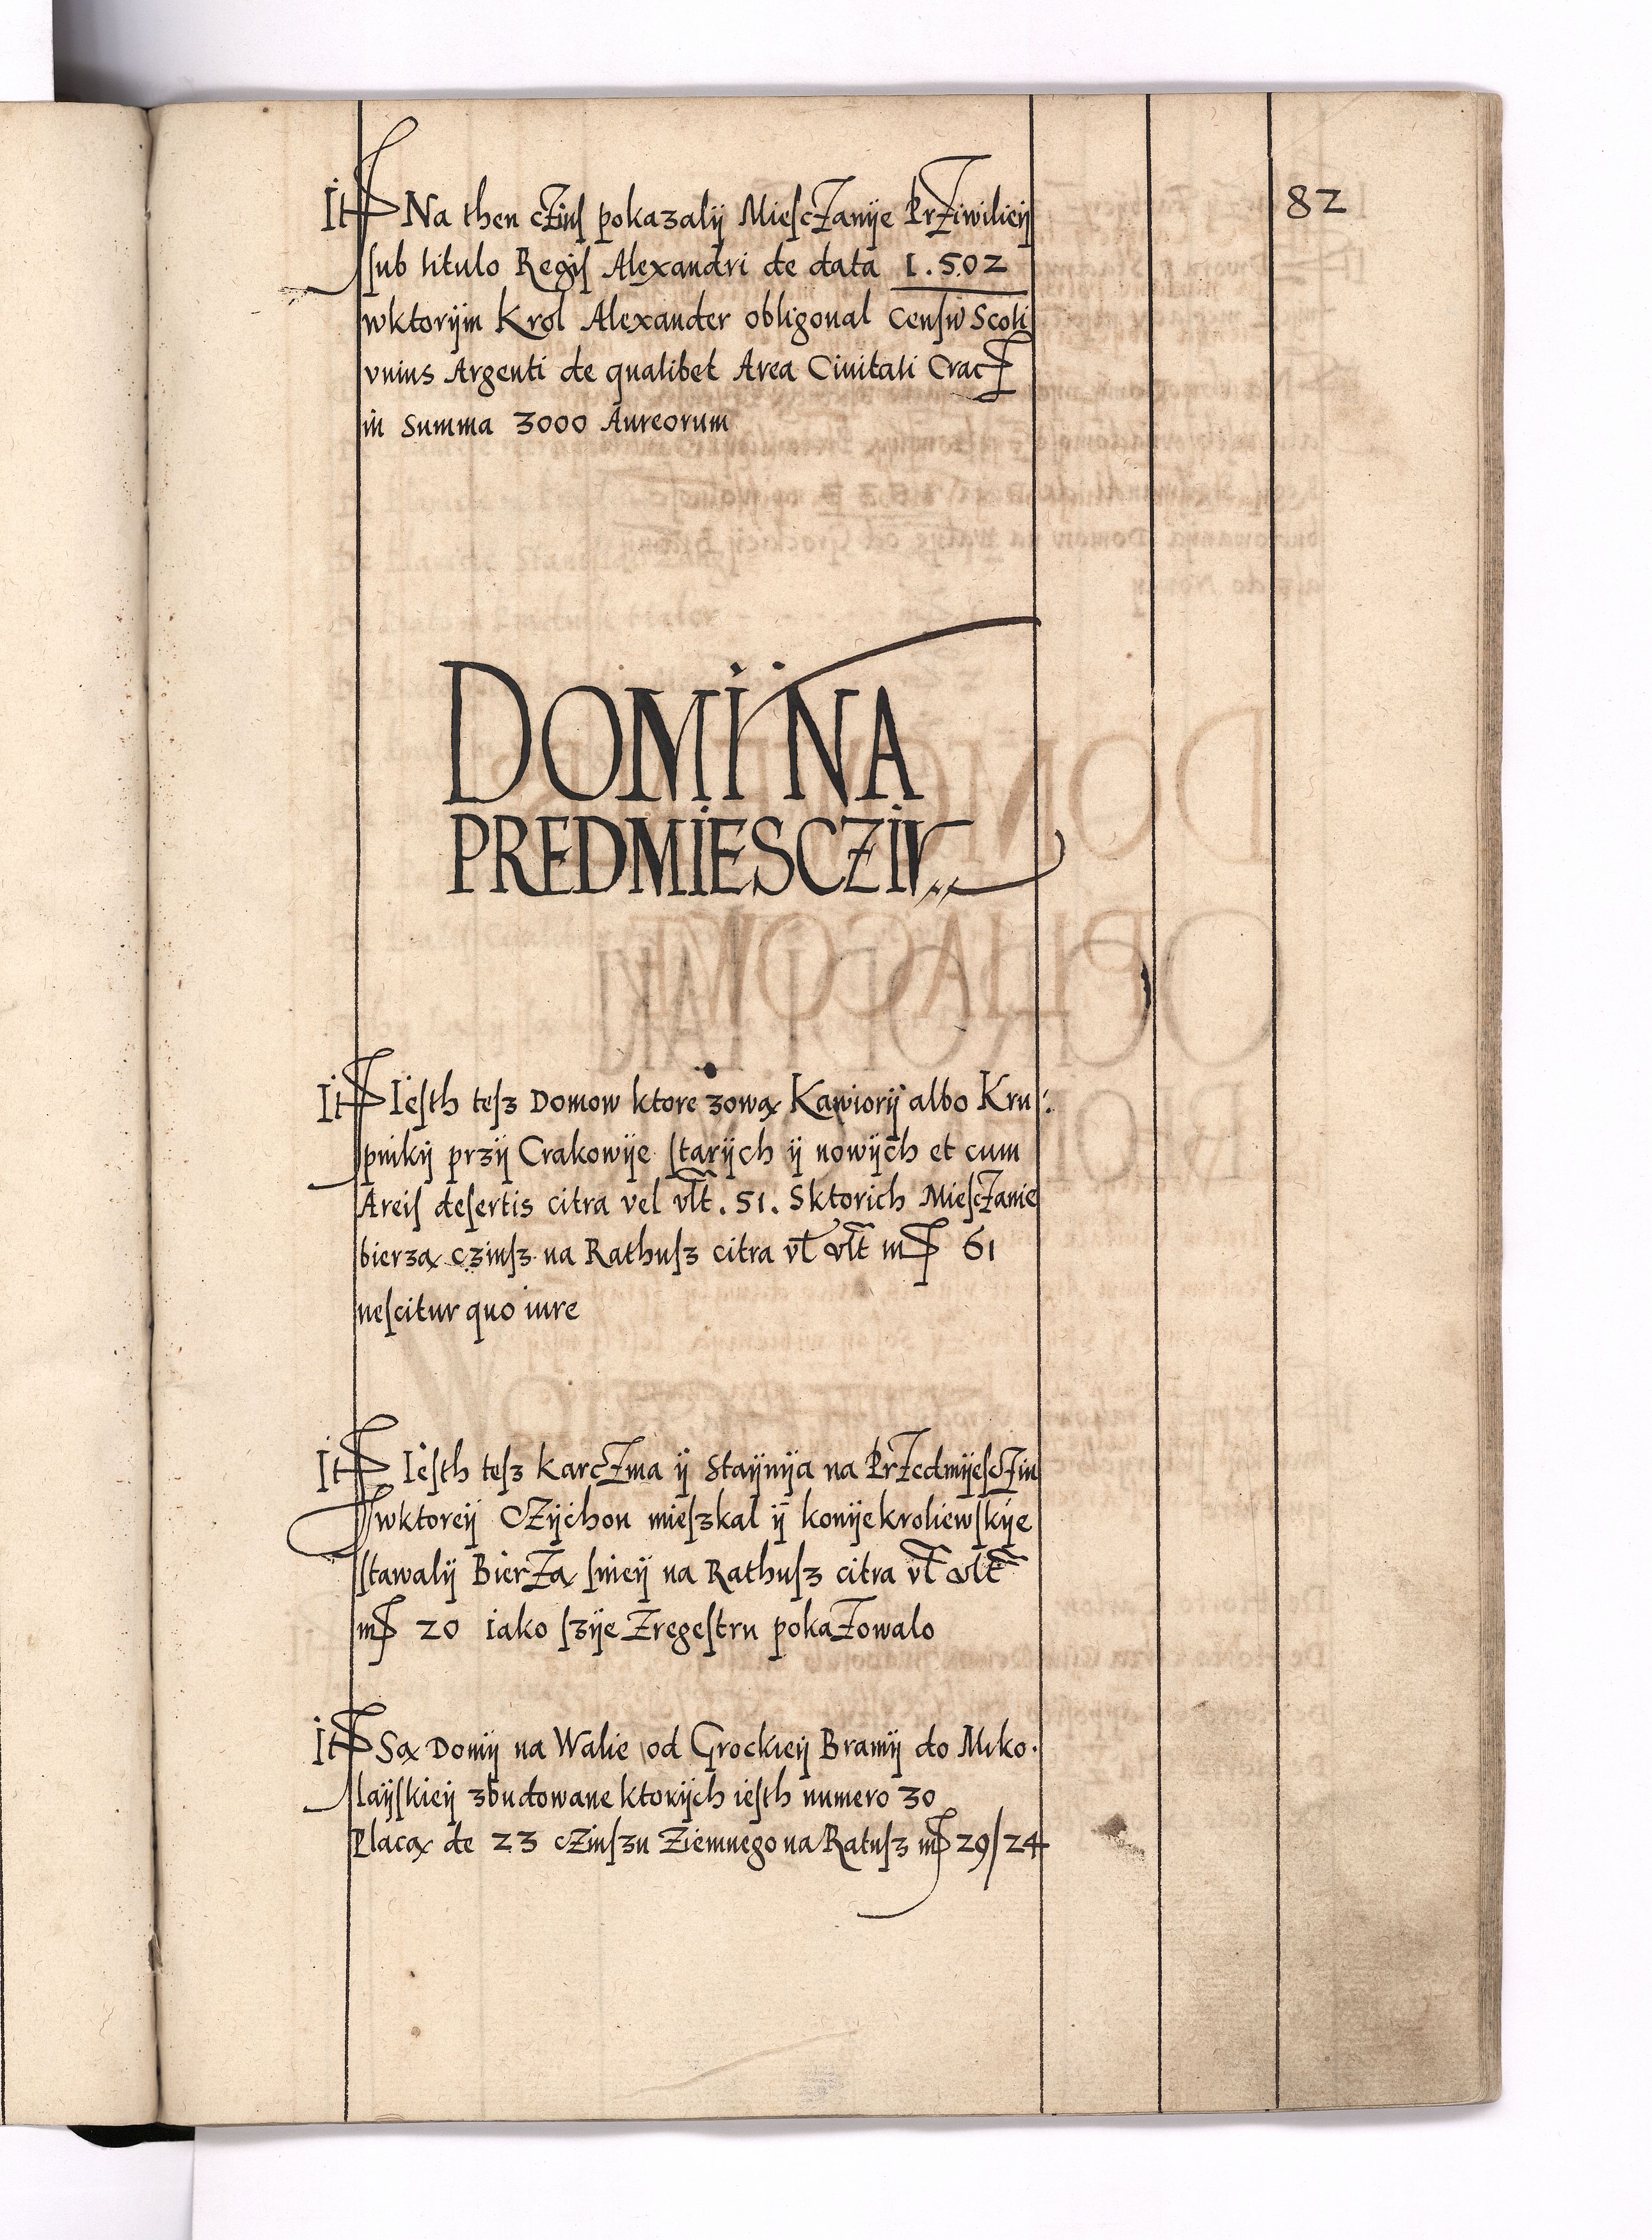 82
It Na then cżinſ pokazalÿ MieſcżanÿePrżiwilieÿ
ſub titulo Regiſ Alexandri de data 1.502
wktorÿm Krol Alexander obligoual Cenſū Scoti
vnius Argenti de qualibet Area Ciuitati Crac
in Summa 3000 Aureorum
DOMI NA
PREDMIESCZIV
It Ieſth teſz Domow ktore zową Kawiorÿ albo Kru:
pnikÿ przÿ Crakowÿe ſtarÿch ÿ nowÿch et cum
Areiſ deſertis citra vel vlt. 51. Sktorich Mieſcżanie
bierzą czinſz na Rathuſz citra vl vlt m 61
neſcitur quo iure
It Ieſth teſz karcżma ÿ StaÿnÿA na PrżedmÿeſcŻiu
wktoreÿ CZÿchon mieſzkal ÿ konÿe kroliewſkÿe
ſtawalÿ BierZą ſnieÿ na Rathuſz citra vl vlt
m 20 iako ſzÿe Zregeſtru pokaZowalo
It Są Domÿ na Walie od Grockieÿ Bramÿ do Miko.
laÿſkieÿ zbudowane ktorÿch ieſth numero 30
Placą de 23 cZinſzu Ziemnego na Ratuſz m 29/24